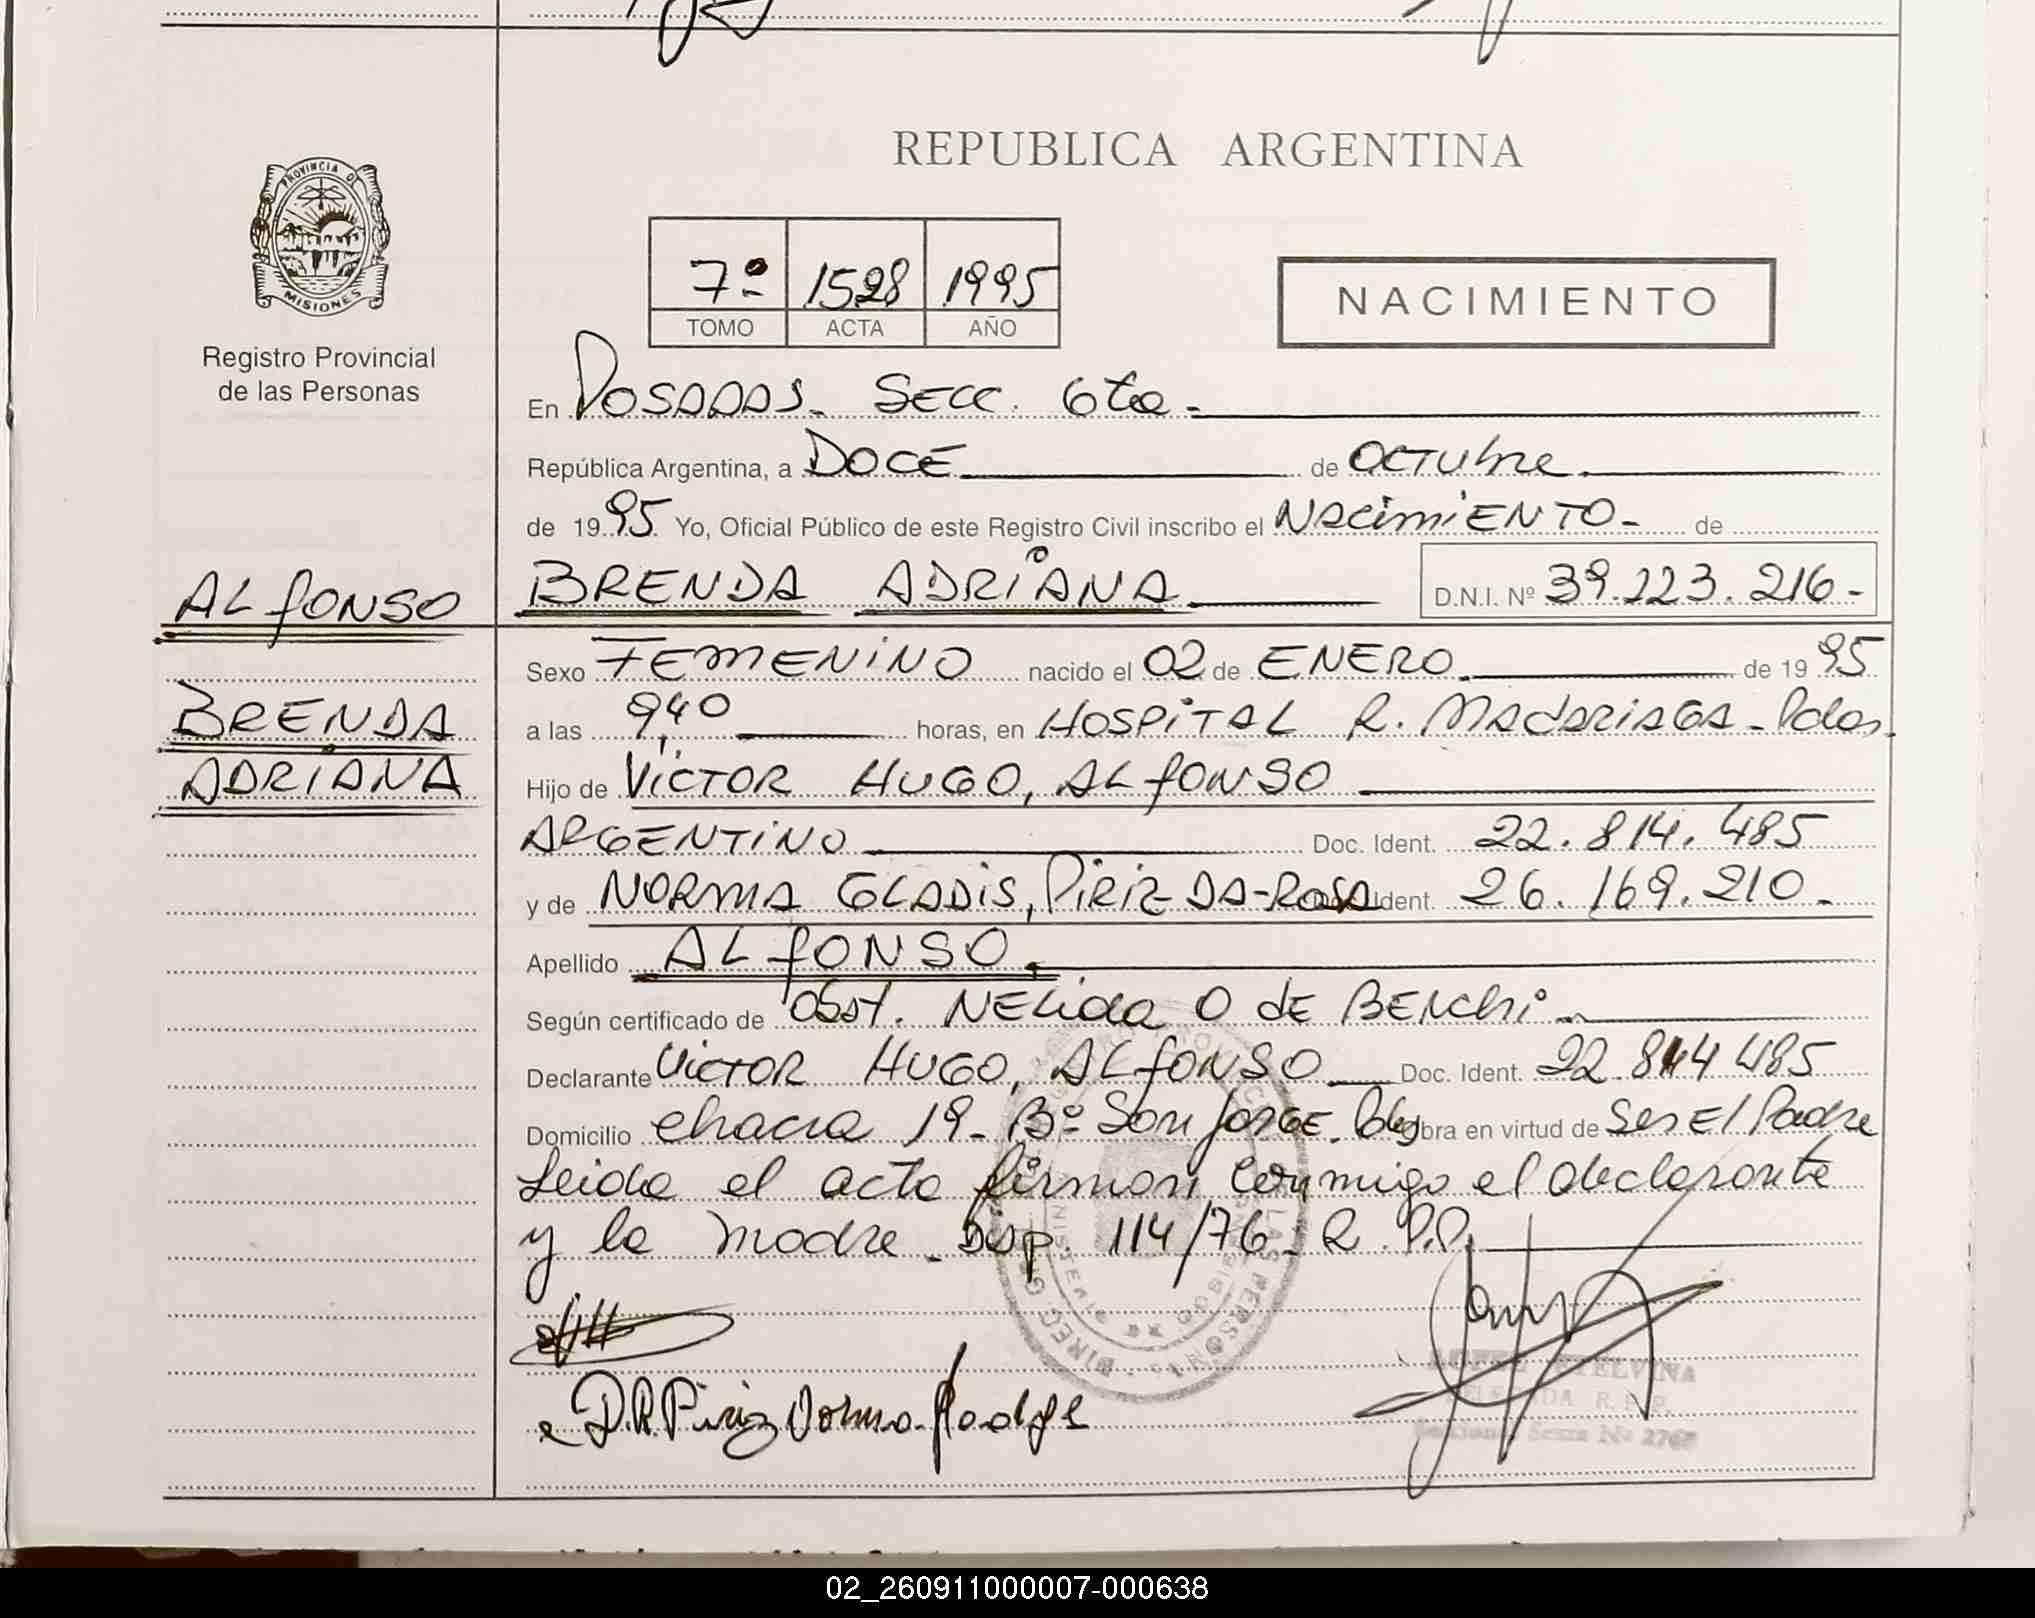 PROVINCIA DE
MISIONES
Registro Provincial
de las Personas
REPUBLICA ARGENTINA
7º 1528 1995
TOMO ACTA AÑO
NACIMIENTO
En POSADAS. SECC. 6ta.
República Argentina, a DOCE de OCTUbre.
de 1995 Yo, Oficial Público de este Registro Civil inscribo el NACimiENTO- de
ALfONSO BRENDA ADRIANA. D.N.I. Nº 39.123.216-
Sexo FEMENINO nacido el 02 de ENERO. de 1995
BRENDA
a las 9,40 horas, en HOSPITAL R. MADARIAGA - Pdas.
ADRIANA
Hijo de VICTOR HUGO, ALfONSO
ARGENTINO Doc. Ident. 22.814.485
y de NORMA GLADIS, PIRIZ DA-ROSA Ident. 26.169.210.
Apellido ALfONSO.
Según certificado de Obst. NELida O dE BENchi
Declarante VICTOR HUGO, ALfONSO Doc. Ident. 22.814 485
Domicilio chacra 19- Bº San JORGE. Pdas obra en virtud de Ser El Padre
Leida el acta firman conmigo el declarante
y la madre. Disp. 114/76- R.P.P.
D.R. Piriz Norma
LOPEZ ETELVINA
DELEGADA R.P.P.
02_260911000007-000638